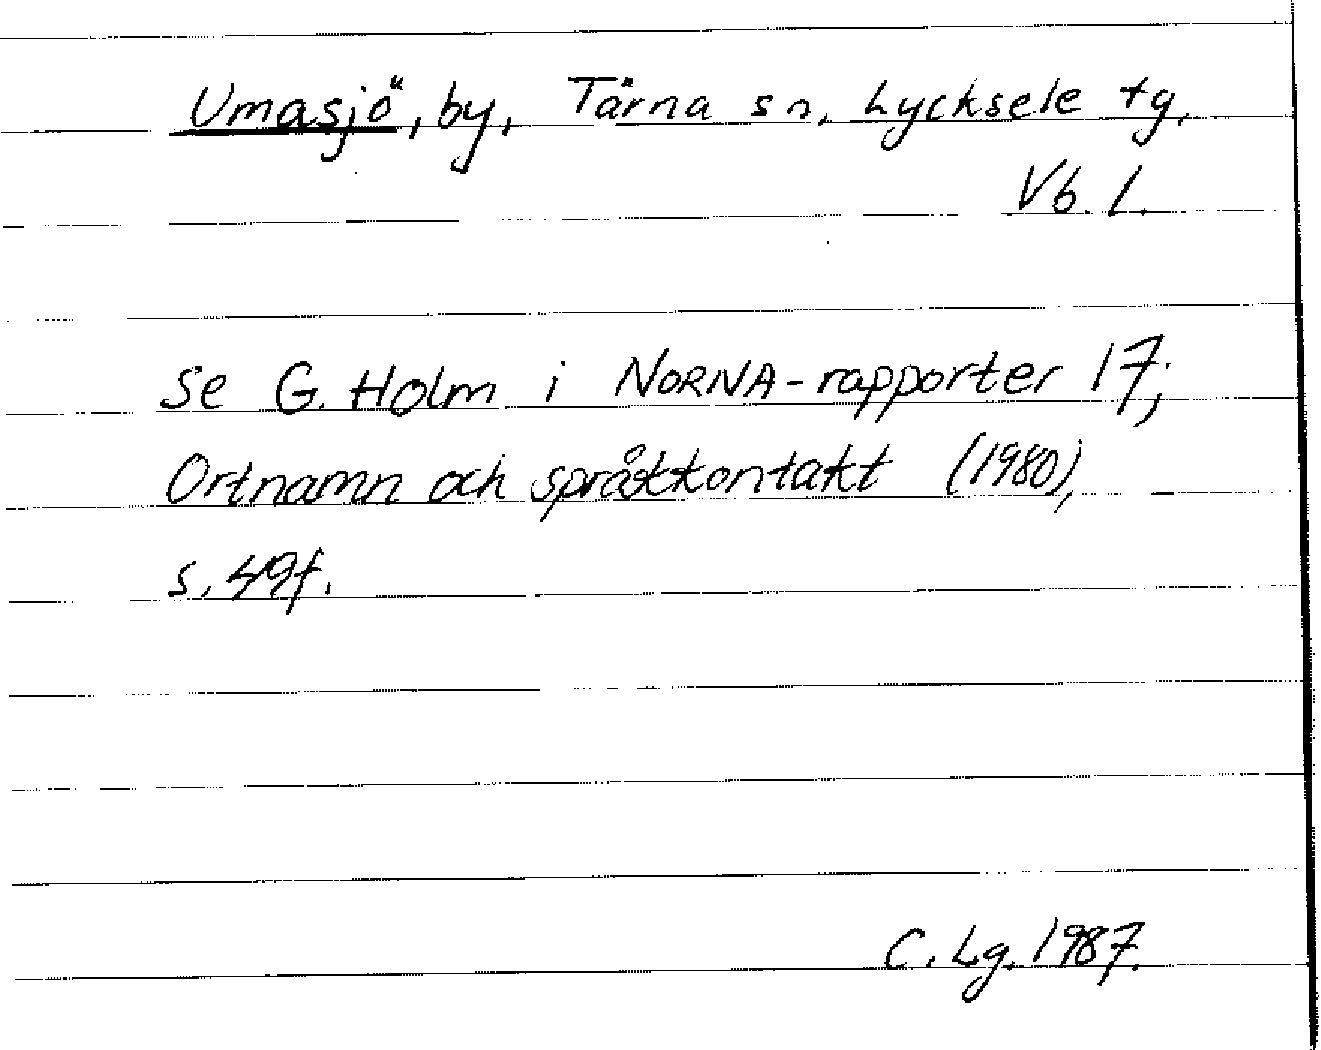 Umasjö, by, Tärna sn, Lycksele tg,
Vb. l.
Se G. Holm i NORNA-rapporter 17;
Ortnamn och språkkontakt (1980),
s. 49f.
C. Lg. 1987.